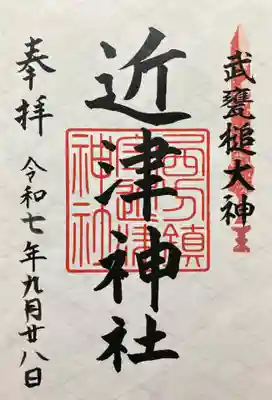 武甕槌大神
近津神社
奉拝
令和七年九月廿八日